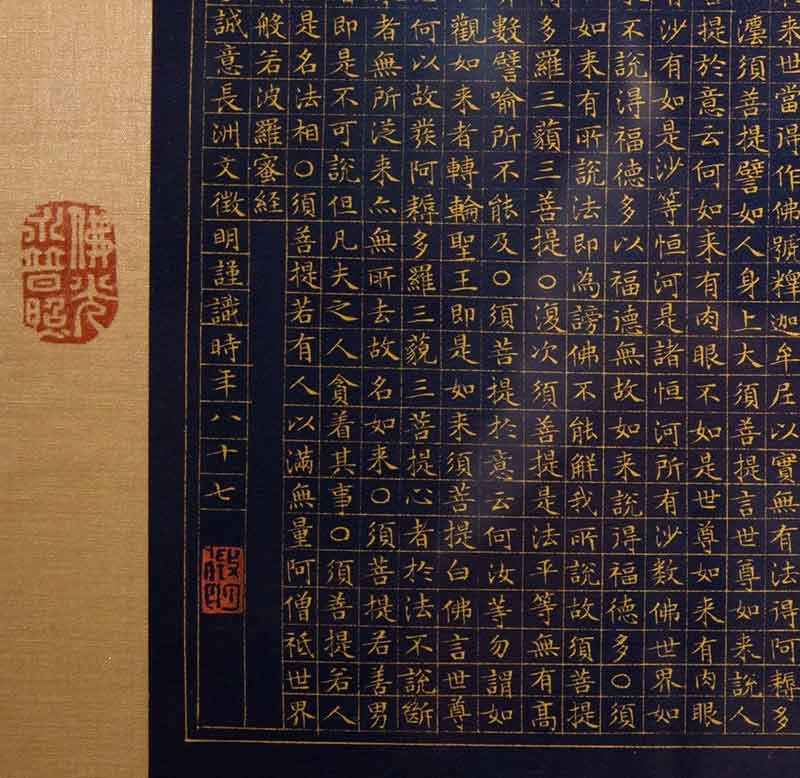 来世當得作佛號釋迦牟尼以實無有法得阿耨多
須菩提譬如人身上大須菩提言世尊如来說人
提於意云何如来有肉眼不如是世尊如来有肉眼
沙有如是沙等恒河是諸恒河所有沙數佛世界如
不說得福德多以福德無故如来說得福德多○須
如来有所說法即為謗佛不能解我所說故須菩提
多羅三藐三菩提○復次須菩提是法平等無有高
數譬喻所不能及○須菩提於意云何汝等勿謂如
觀如来者轉輪聖王即是如来須菩提白佛言世尊
何以故發阿耨多羅三藐三菩提心者於法不說斷
者無所從来亦無所去故名如来○須菩提若善男
即是不可說但凡夫之人貪着其事○須菩提若人
是名法相○須菩提若有人以滿無量阿僧祇世界
般若波羅蜜經
誠意長洲文徵明謹識時年八十七
徵明
佛光
永普照